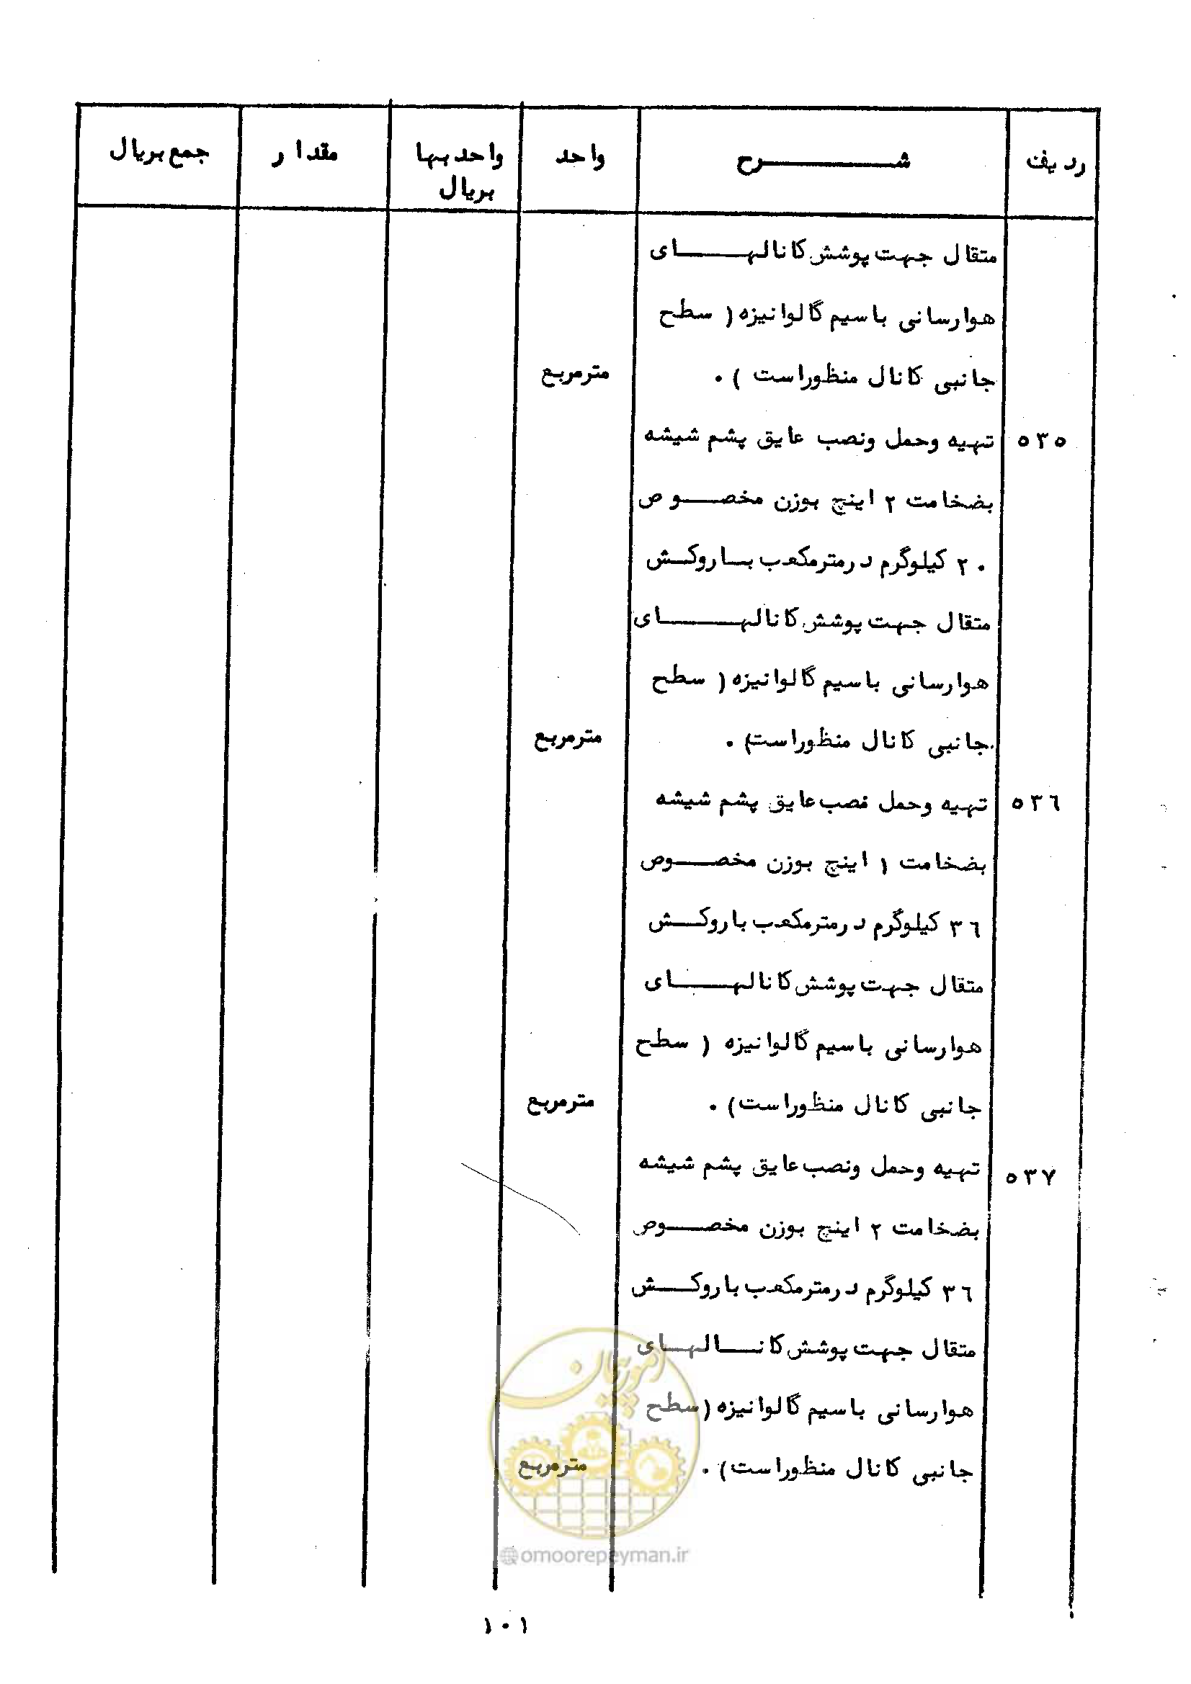 ردیف شرح واحد واحد بها مقدار جمع بریال
بریال
متقال جهت پوشش کانالهای
هوارسانی با سیم گالوانیزه ( سطح
جانبی کانال منظور است ) . مترمربع
۵۳۵ تهیه وحمل ونصب عایق پشم شیشه
بضخامت ۲ اینچ بوزن مخصوص
۲۰ کیلوگرم درمترمکعب با روکش
متقال جهت پوشش کانالهای
هوارسانی با سیم گالوانیزه ( سطح
جانبی کانال منظور است) . مترمربع
۵۳۶ تهیه وحمل نصب عایق پشم شیشه
بضخامت ۱ اینچ بوزن مخصوص
۳۶ کیلوگرم درمترمکعب با روکش
متقال جهت پوشش کانالهای
هوارسانی با سیم گالوانیزه ( سطح
جانبی کانال منظور است) . مترمربع
۵۳۷ تهیه وحمل ونصب عایق پشم شیشه
بضخامت ۲ اینچ بوزن مخصوص
۳۶ کیلوگرم درمترمکعب با روکش
متقال جهت پوشش کانالهای
هوارسانی با سیم گالوانیزه (سطح
جانبی کانال منظور است) . مترمربع
امور پیمان
@omoorepeyman.ir
۱۰۱